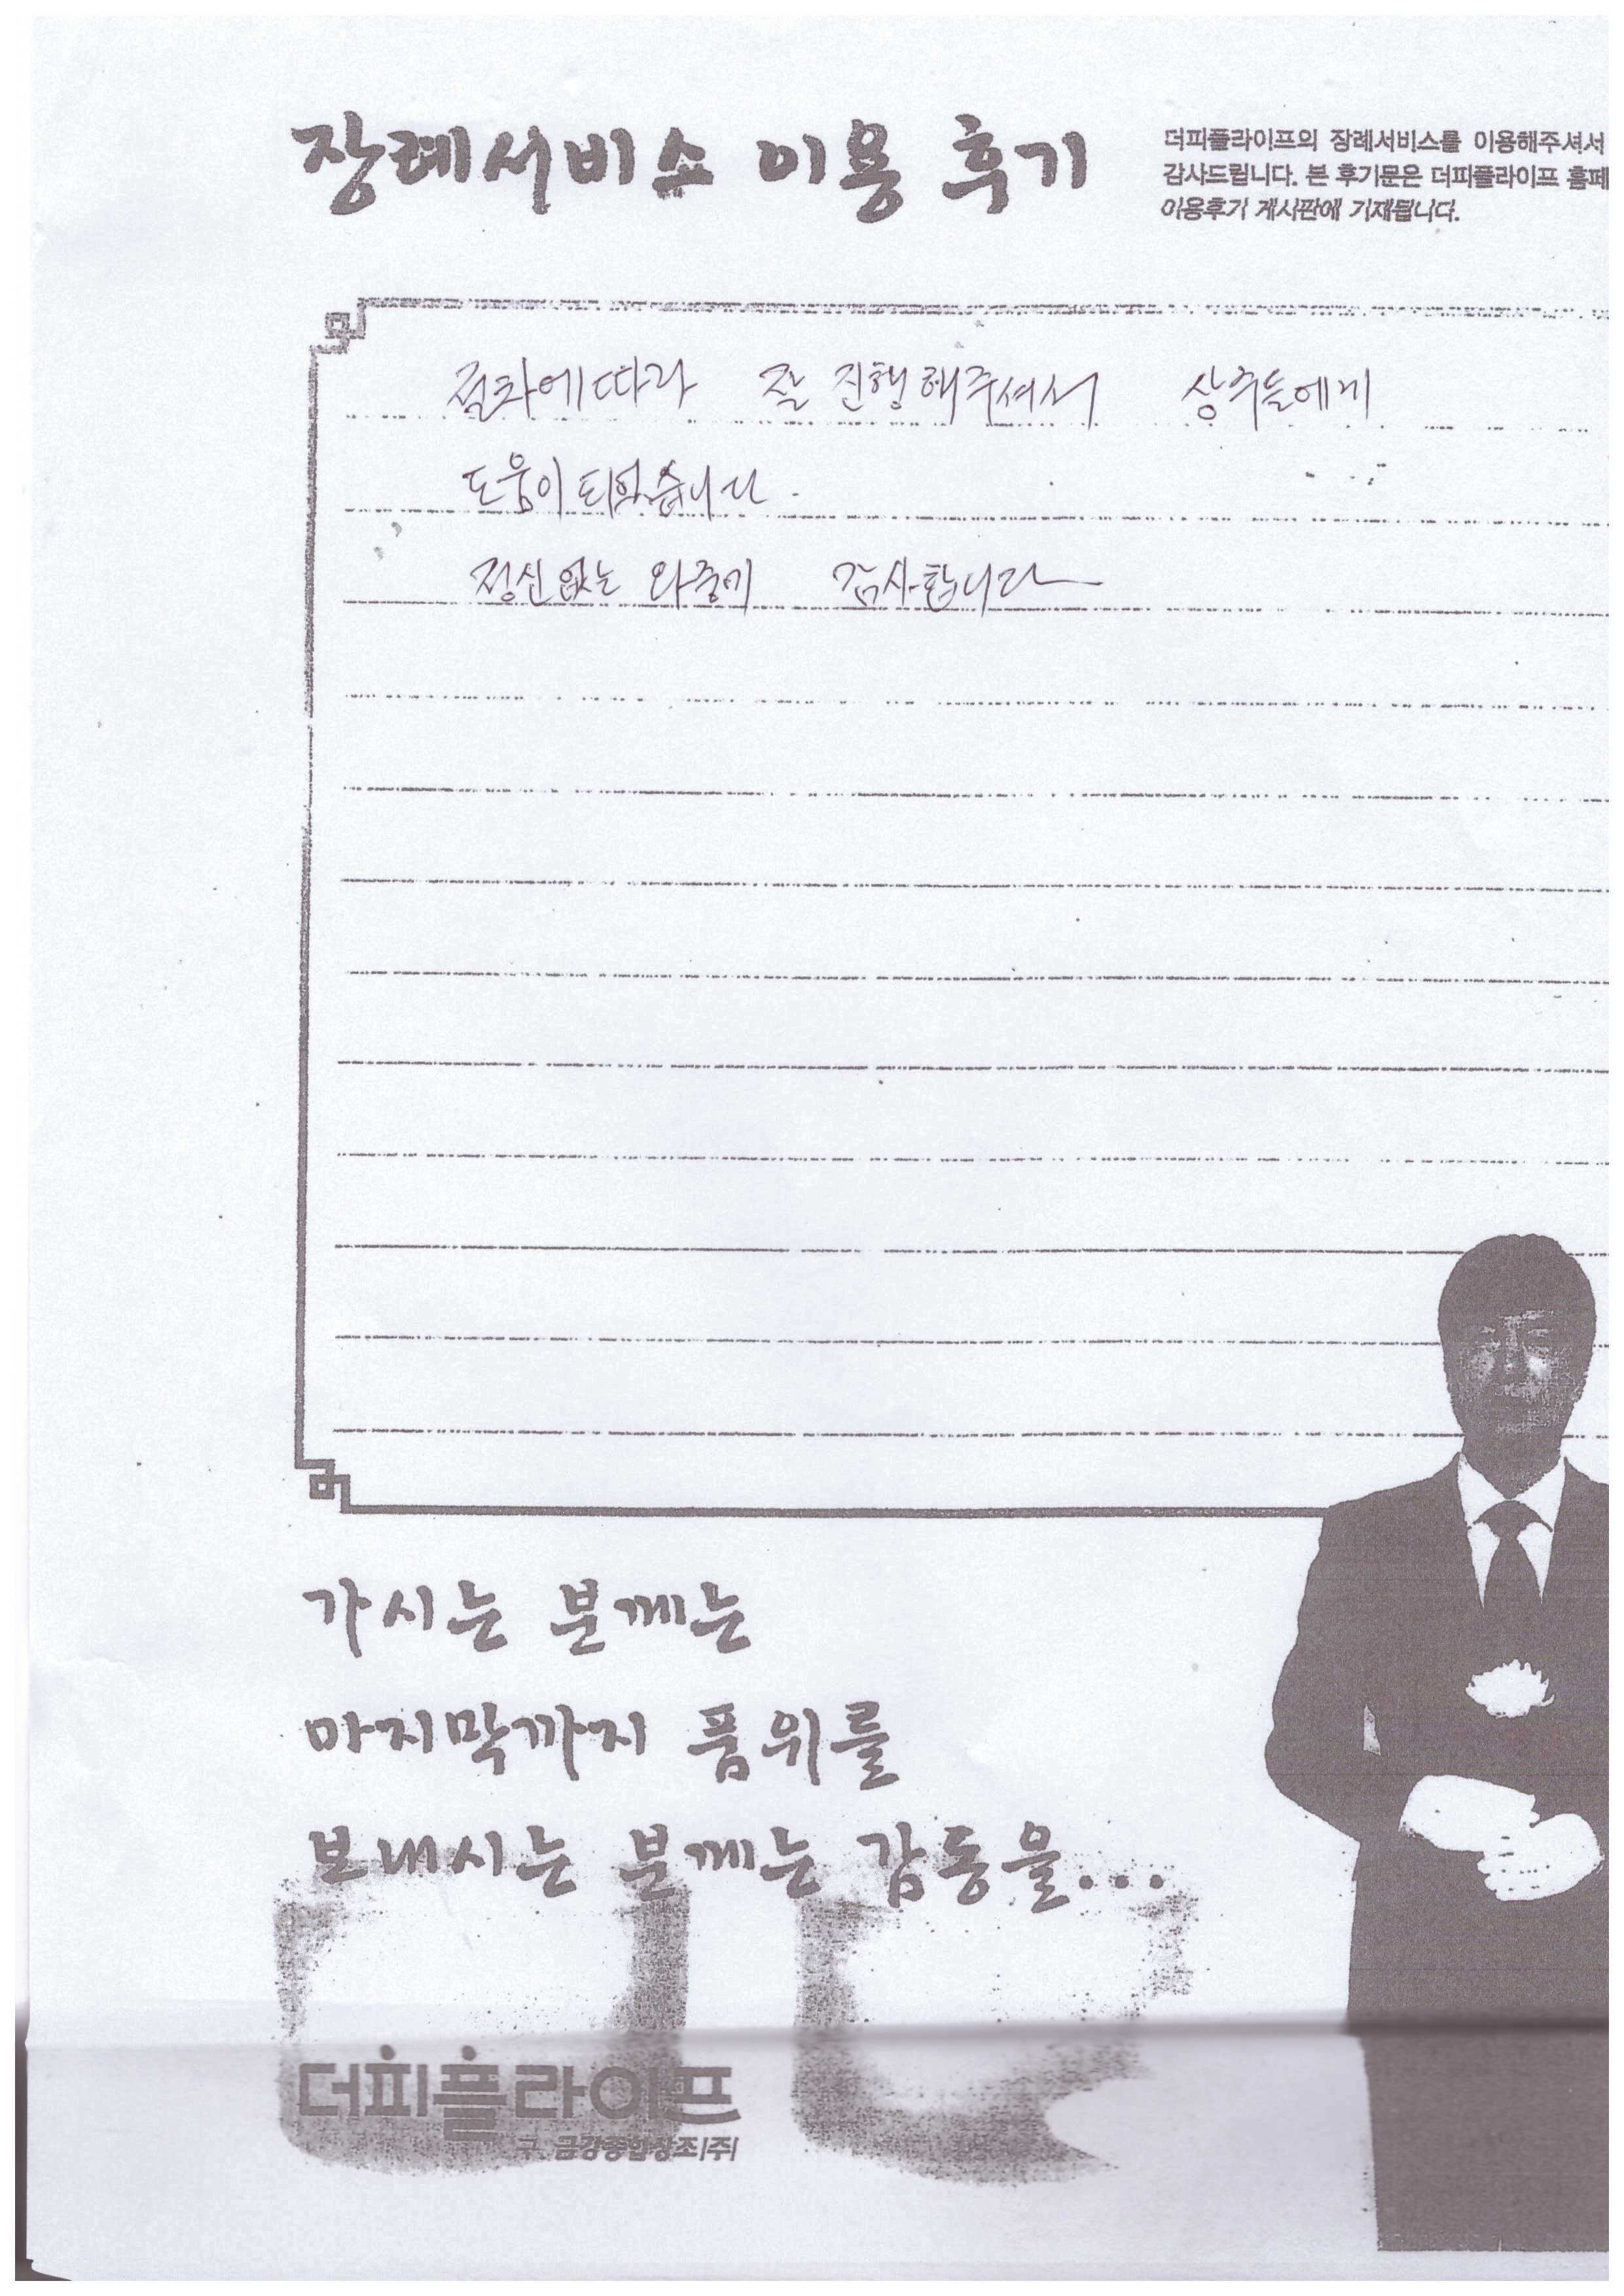 장례서비스 이용 후기
더피플라이프의 장례서비스를 이용해주셔서
감사드립니다. 본 후기문은 더피플라이프 홈페
이용후기 게시판에 기재됩니다.
절차에따라 잘 진행해주셔서 상주들에게
도움이 되었습니다.
정신없는 와중에 감사합니다
가시는 분께는
마지막까지 품위를
보내시는 분께는 감동을...
더피플라이프
구. 금강종합상조(주)